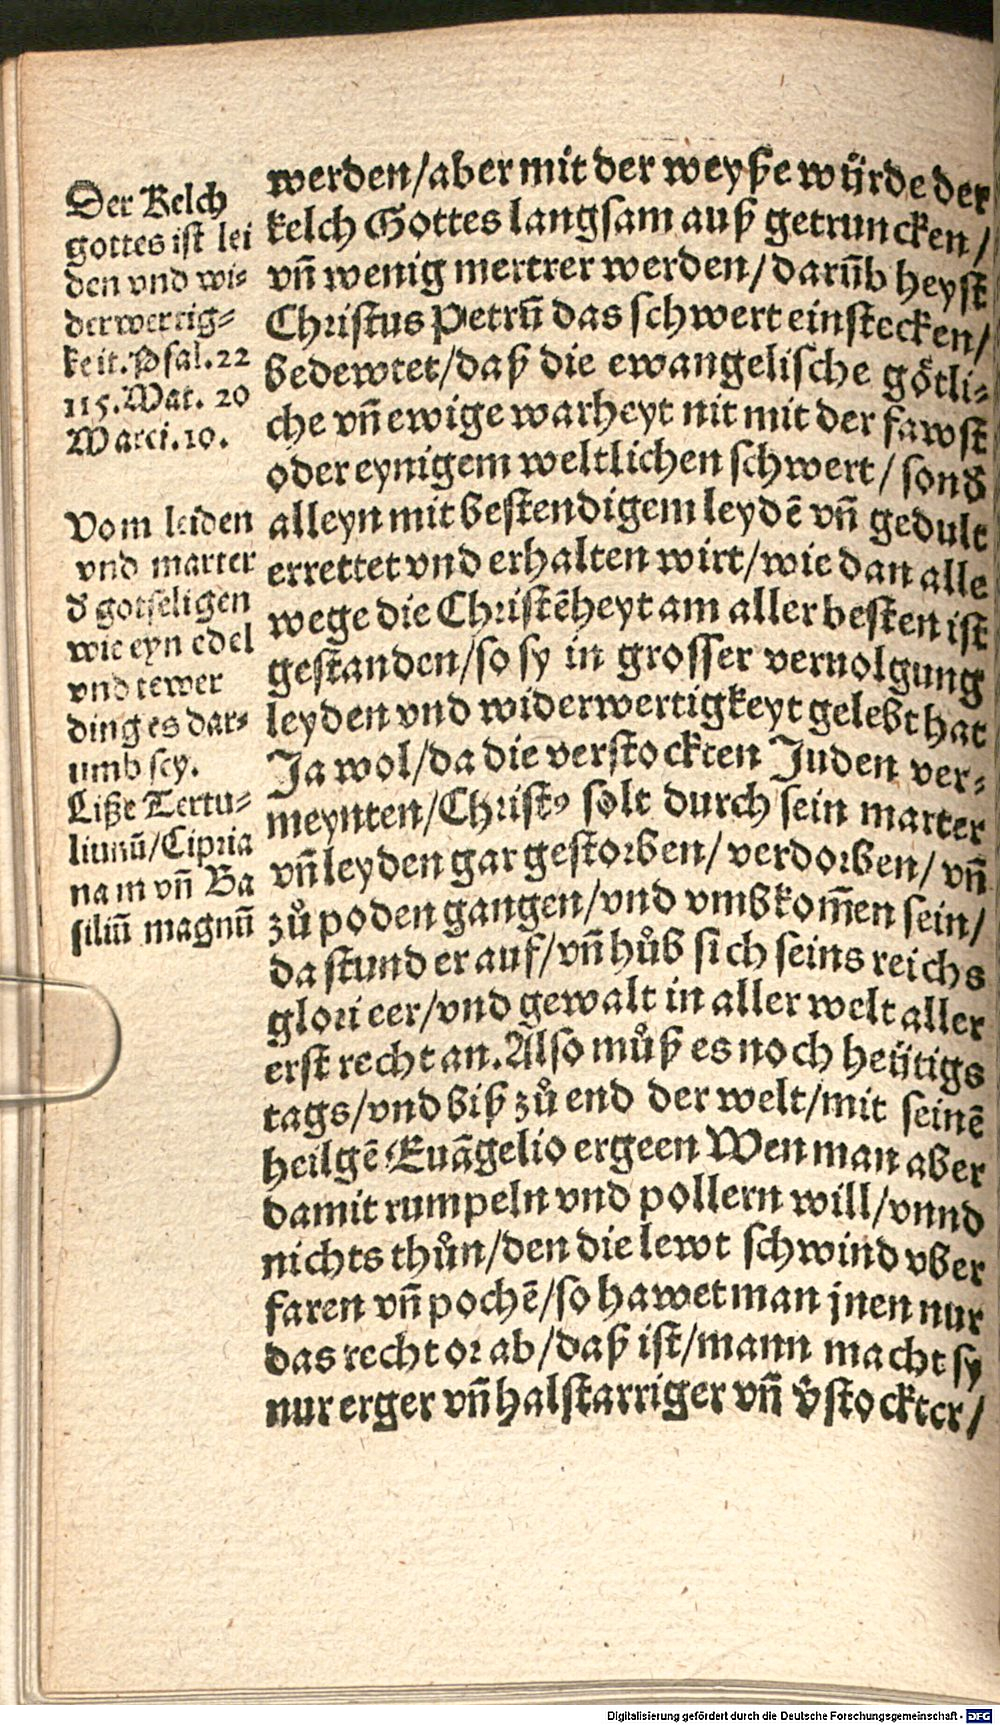 Der Kelch
gottes ist lei
den vnd wi-
derwertig-
keit. Psal. 22
115. Mat. 20
Marci. 10.
Vom leiden
vnd marter
d̕ gotseligen
wie eyn edel
vnd tewer
ding es dar-
umb sey.
Liße Tertu-
lianū/Cipria
nam vñ Ba
siliū magnū
werden/aber mit der weyße würde der
kelch Gottes langsam auß getruncken/
vñ wenig mertrer werden/darūb heyst
Christus Petrū das schwert einstecken/
bedewtet/daß die ewangelische götli-
che vñ ewige warheyt nit mit der fawst
oder eynigem weltlichen schwert/sond̕
alleyn mit bestendigem leydē vñ gedult
errettet vnd erhalten wirt/wie dan alle
wege die Christēheyt am aller besten ist
gestanden/so sy in grosser veruolgung
leyden vnd widerwertigkeyt gelebt hat
Ja wol/da die verstockten Juden ver-
meynten/Christꝰ solt durch sein marter
vñ leyden gar gestorben/verdorben/vñ
zů poden gangen/vnd vmbkom̄en sein/
da stund er auf/vñ hůb sich seins reichs
glori eer/vnd gewalt in aller welt aller
erst recht an. Also můß es noch heütigs
tags/vnd biß zů end der welt/mit seinē
heilgē Euāgelio ergeen Wen man aber
damit rumpeln vnd pollern will/vnnd
nichts thůn/den die lewt schwind vber
faren vñ pochē/so hawet man jnen nur
das recht or ab/daß ist/mann macht sy
nur erger vñ halstarriger vñ v̄stockter/
Digitalisierung gefördert durch die Deutsche Forschungsgemeinschaft - DFG